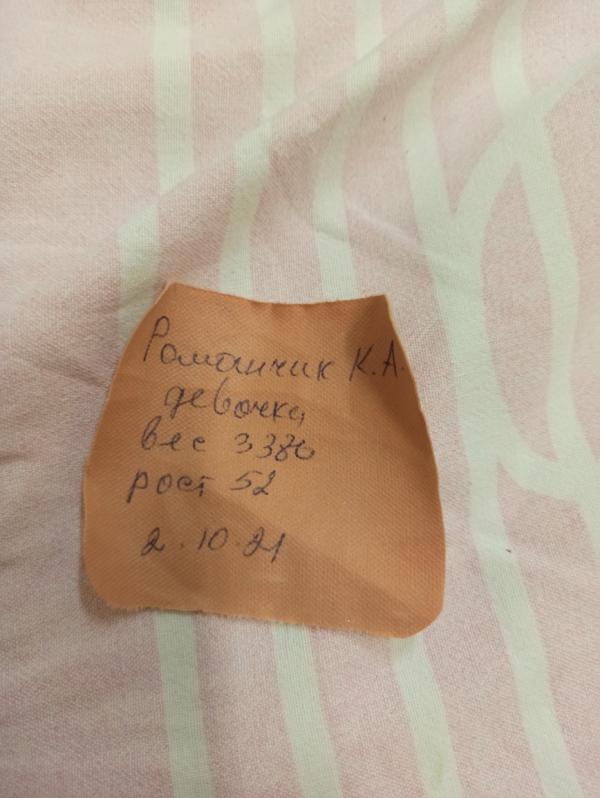 Романчик К.А.
девочка
вес 3380
рост 52
2.10.21